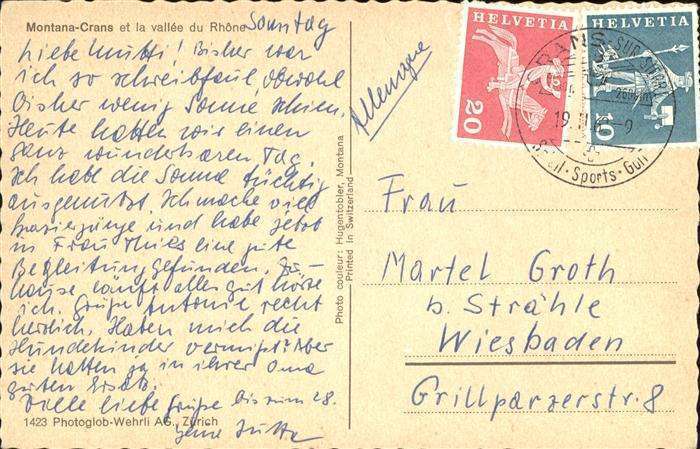 Montana-Crans et la vallée du Rhône
Sonntag
Liebe Mutti! Bisher war
ich so schreibfaul, obwohl
bisher wenig Sonne schien.
Heute hatten wir einen
ganz wunderbaren Tag.
Ich habe die Sonne tüchtig
ausgenutzt. Ich mache viel
Spaziergänge und habe jetzt
in Frau Thies eine gute
Begleitung gefunden. Zu-
hause läuft alles gut hörte
ich. Grüße Antonie recht
herzlich. Haben mich die
Hundekinder vermißt? Aber
sie hatten ja in ihrer Oma
guten Ersatz.
Viele liebe Grüße bis zum 28.
Deine Jutta
1423 Photoglob-Wehrli AG., Zürich
Photo couleur: Hugentobler, Montana
Printed in Switzerland
Allemagne
HELVETIA
20
HELVETIA
10
CRANS-SUR-SIERRE
19.
Sports-Golf
Frau
Martel Groth
b. Strähle
Wiesbaden
Grillparzerstr. 8